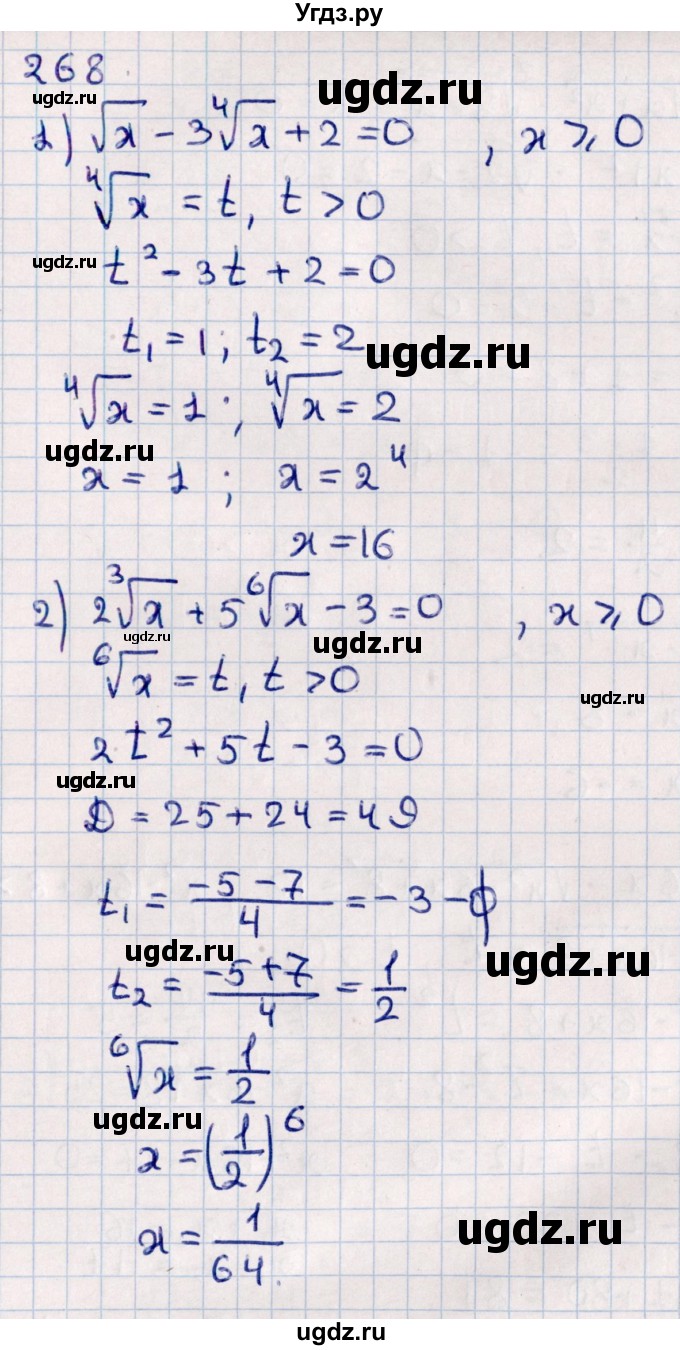 Угдз.ру
268
ugdz.ru ugdz.ru
1) √x - 3⁴√x + 2 = 0 , x ⩾ 0
⁴√x = t, t > 0
ugdz.ru t² - 3t + 2 = 0
t₁ = 1 ; t₂ = 2
ugdz.ru
⁴√x = 1 ; ⁴√x = 2
ugdz.ru
x = 1 ; x = 2⁴
x = 16
2) 2³√x + 5⁶√x - 3 = 0 , x ⩾ 0
ugdz.ru ugdz.ru
⁶√x = t, t > 0
ugdz.ru
2t² + 5t - 3 = 0
ugdz.ru
D = 25 + 24 = 49
t₁ = (-5 - 7)/4 = -3 - ϕ
ugdz.ru ugdz.ru
t₂ = (-5 + 7)/4 = 1/2
⁶√x = 1/2
ugdz.ru
x = (1/2)⁶
ugdz.ru
x = 1/64.
ugdz.ru